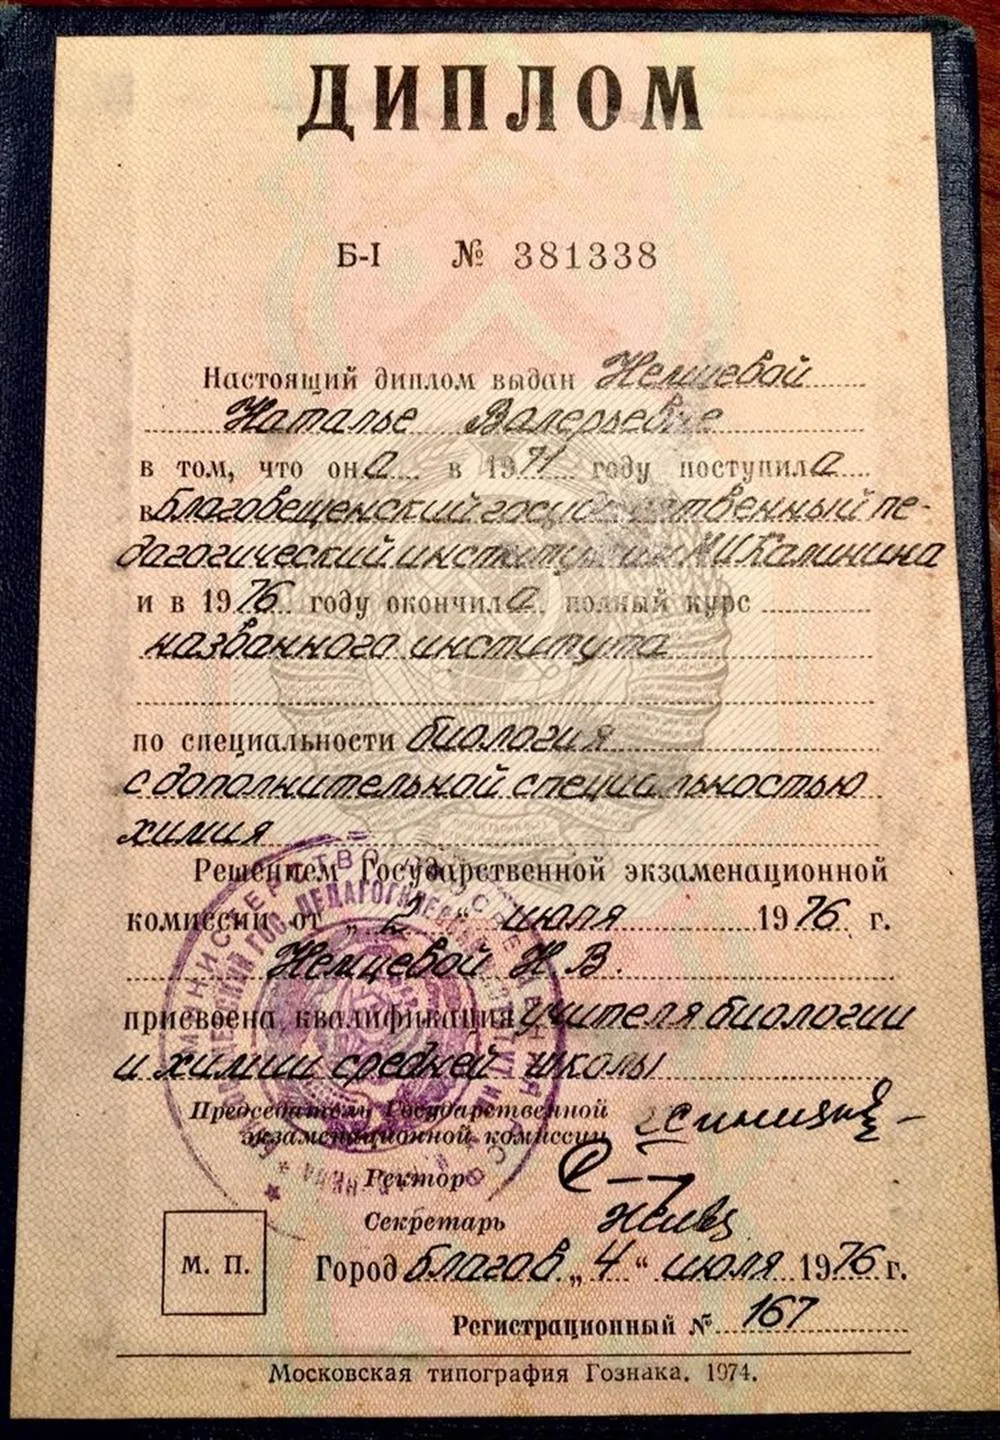 ДИПЛОМ
Б-I № 381338
Настоящий диплом выдан Немцевой
Наталье Валерьевне
в том, что она в 1971 году поступила
в Благовещенский государственный пе-
дагогический институт им М И Калинина
и в 1976 году окончила полный курс
названного института
по специальности биология
с дополнительной специальностью
химия
Решением Государственной экзаменационной
комиссии от „2“ июля 1976 г.
Немцевой Н. В.
присвоена квалификация учителя биологии
и химии средней школы
Председатель Государственной
экзаменационной комиссии
Ректор
Секретарь
М. П.
Город Благов „4“ июля 1976 г.
Регистрационный № 167
Московская типография Гознака. 1974.